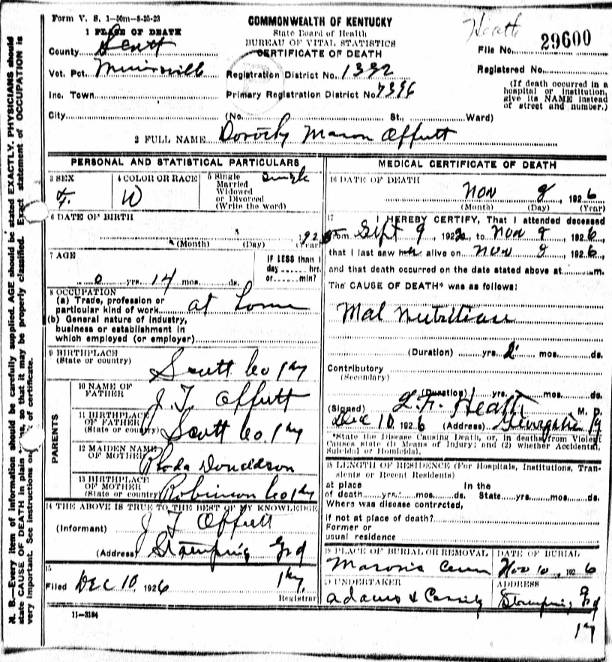 Form V. S. 1-50m-8-20-23
1 PLACE OF DEATH
County Scott
Vot. Pct.
Inc. Town
City
COMMONWEALTH OF KENTUCKY
State Board of Health
BUREAU OF VITAL STATISTICS
CERTIFICATE OF DEATH
Registration District No. 1392
Primary Registration District No. 7396
(No. St., Ward)
Heath
File No. 29600
Registered No.
(If death occurred in a
hospital or institution,
give its NAME instead
of street and number.)
2 FULL NAME Dorothy Mason Offutt
PERSONAL AND STATISTICAL PARTICULARS
3 SEX F.
4 COLOR OR RACE W
5 Single
Married
Widowed
or Divorced
(Write the word)
Single
6 DATE OF BIRTH
(Month) (Day) (Year)
7 AGE
0 yrs. 14 mos. ds.
IF LESS than 1
day hrs.
or min?
8 OCCUPATION
(a) Trade, profession or
particular kind of work at home
(b) General nature of industry,
business or establishment in
which employed (or employer)
9 BIRTHPLACE
(State or country) Scott Co Ky
PARENTS
10 NAME OF
FATHER J. T Offutt
11 BIRTHPLACE
OF FATHER
(State or country) Scott Co. Ky
12 MAIDEN NAME
OF MOTHER Rhoda Donaldson
13 BIRTHPLACE
OF MOTHER
(State or country) Robinson Co Ky
14 THE ABOVE IS TRUE TO THE BEST OF MY KNOWLEDGE
(Informant) J T Offutt
(Address) Stamping Grd
Ky
15
Filed DEC 10, 1926
Registrar
11-3184
MEDICAL CERTIFICATE OF DEATH
16 DATE OF DEATH
Nov 8 1926
(Month) (Day) (Year)
17 I HEREBY CERTIFY, That I attended deceased
from Sept 9, 192 to Nov 8 1926,
that I last saw alive on Nov 8 1926,
and that death occurred on the date stated above at m.
The CAUSE OF DEATH* was as follows:
Mal Nutrition
(Duration) yrs. 2 mos. ds.
Contributory
(Secondary)
(Duration) yrs. mos. ds.
(Signed) Heath M. D.
Dec 10 1926 (Address) Georgetown Ky
*State the Disease Causing Death, or, in deaths from Violent
Causes state (1) Means of Injury; and (2) whether Accidental,
Suicidal or Homicidal.
18 LENGTH OF RESIDENCE (For Hospitals, Institutions, Transients
or Recent Residents)
at place In the
of death yrs. mos. ds. State yrs. mos. ds.
Where was disease contracted,
if not at place of death?
Former or
usual residence
19 PLACE OF BURIAL OR REMOVAL
DATE OF BURIAL
Nov 10, 1926
20 UNDERTAKER
ADDRESS
Stamping Grd
Ky
N. B.—Every item of information should be carefully supplied. AGE should be stated EXACTLY. PHYSICIANS should
state CAUSE OF DEATH in plain terms, so that it may be properly classified. Exact statement of OCCUPATION is
very important. See instructions on of certificate.